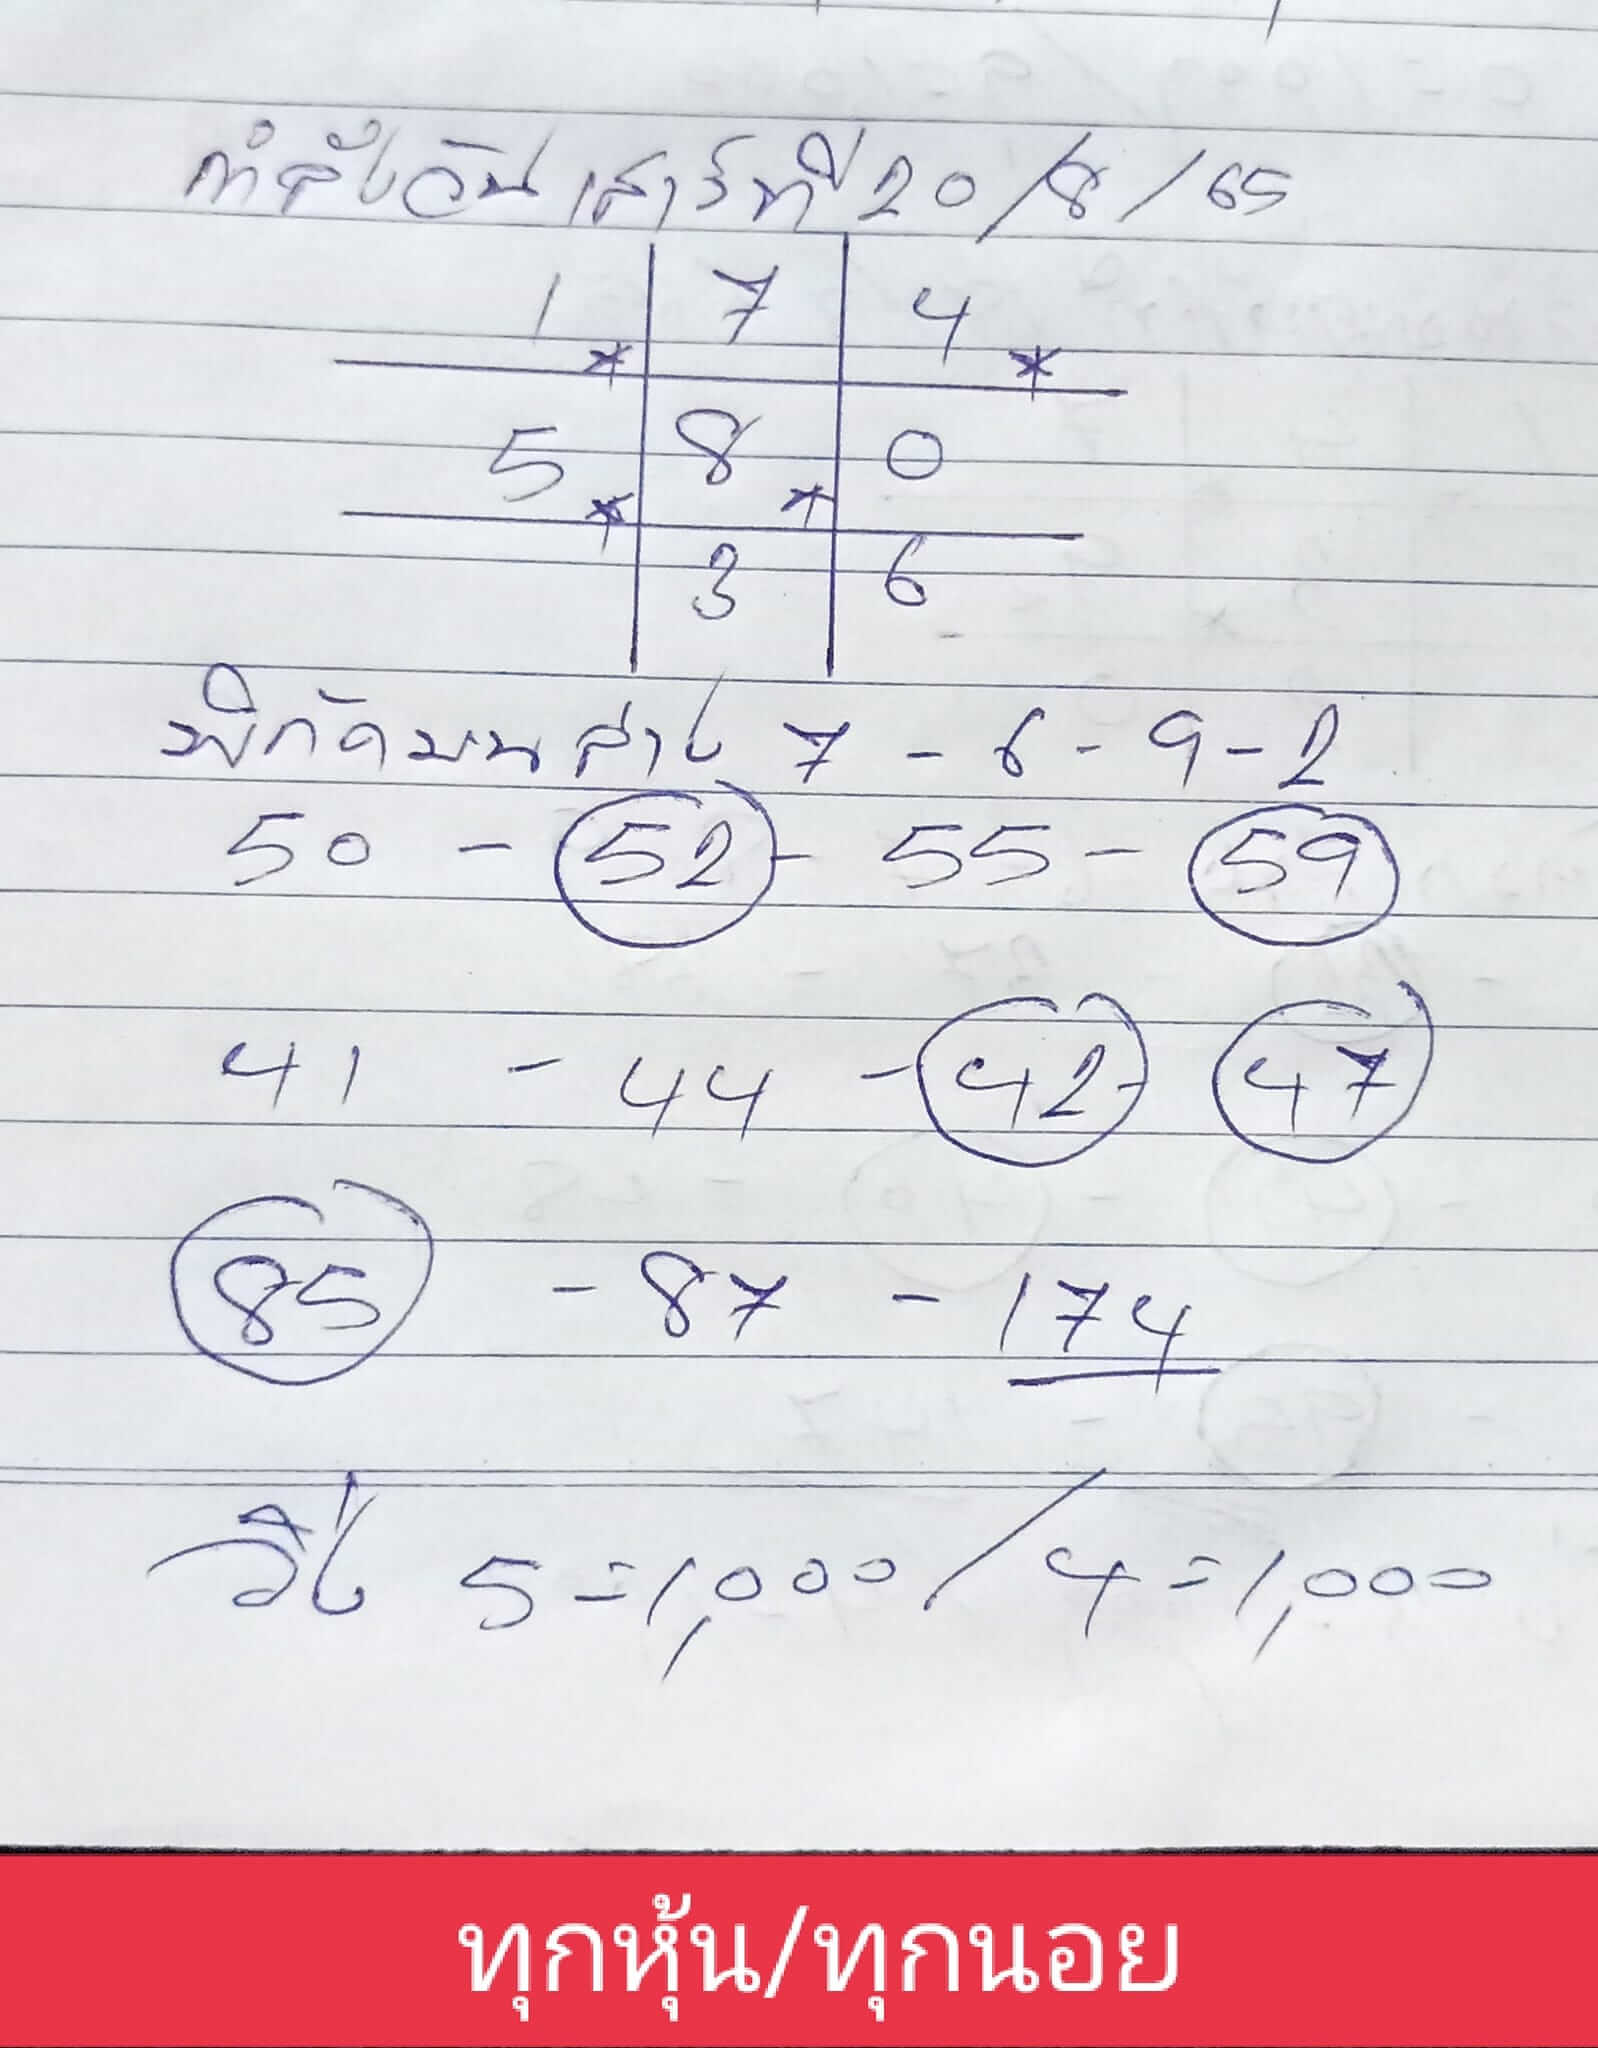 กำลังวันเสาร์ที่ 20/8/65
1 7 4
* *
5 8 0
* *
3 6
พิกัดบนล่าง 7 - 6 - 9 - 2
50 - 52 - 55 - 59
41 - 44 - 42 - 47
85 - 87 - 174
วิ่ง 5 = 1,000 / 4 = 1,000
ทุกหุ้น/ทุกนอย